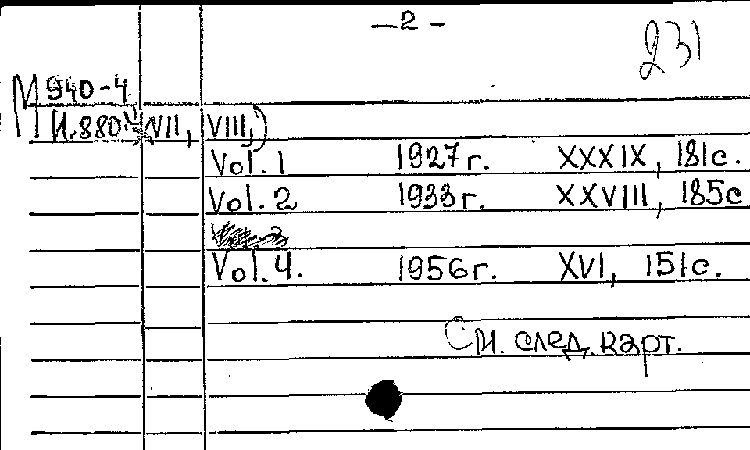 — 2 —
231
М 940-4
И.880 VII, VIII,)
Vol. 1 1927 г. XXXIX, 181с.
Vol. 2 1933 г. XXVIII, 185с
Vol. 4. 1956 г. XVI, 151с.
См. след. карт.